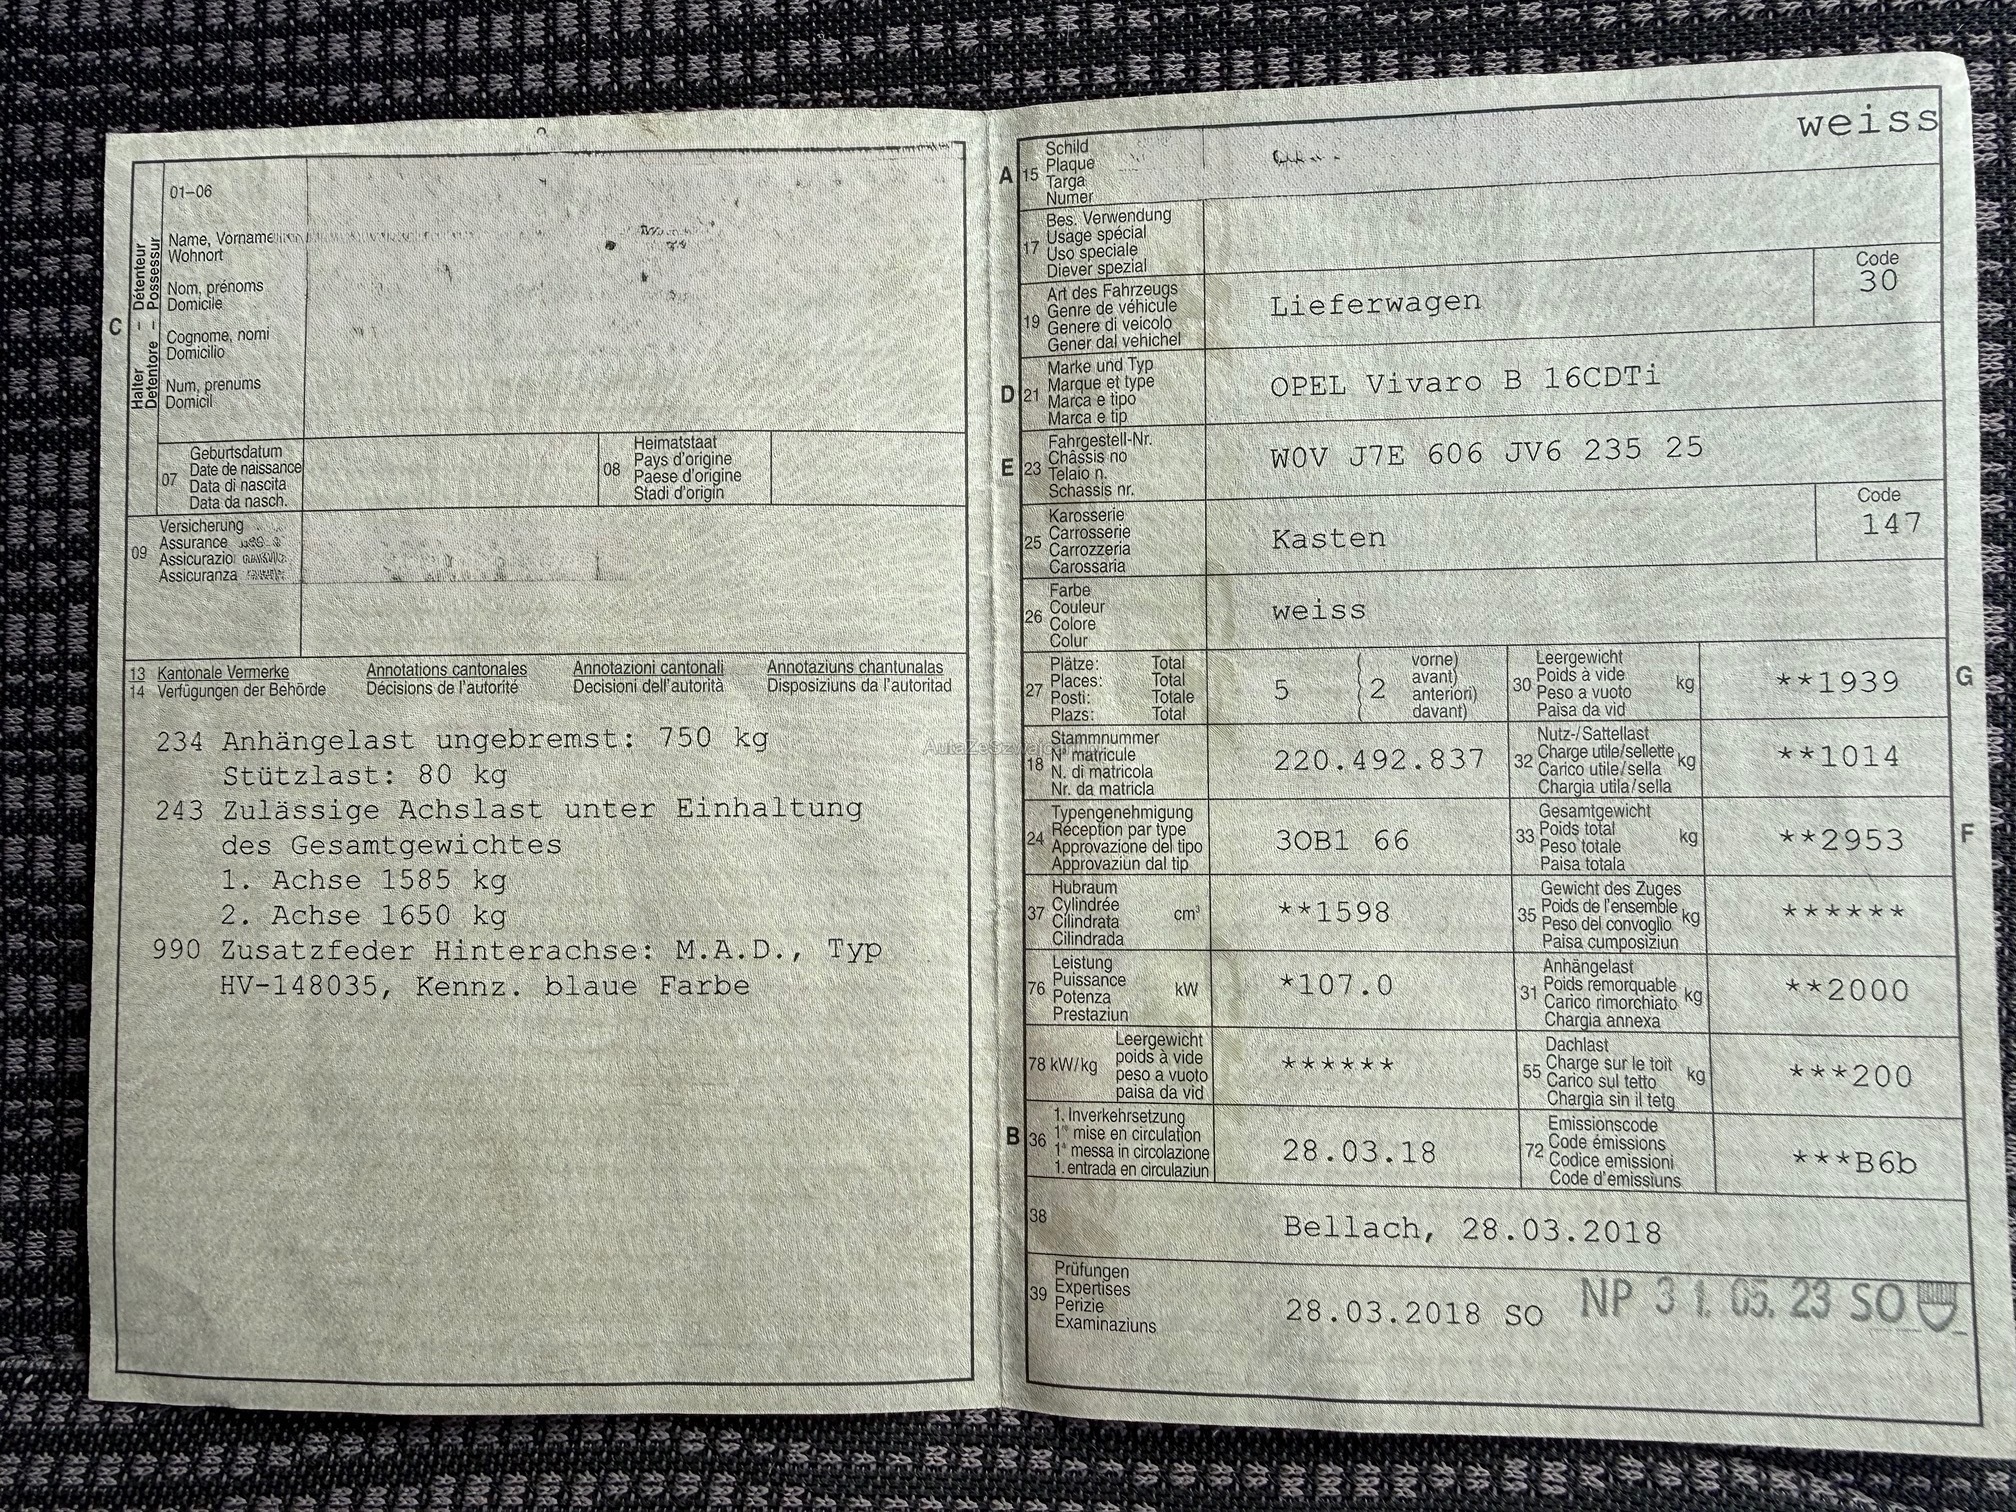 01–06
Name, Vorname
Wohnort
Nom, prénoms
Domicile
Cognome, nomi
Domicilio
Num, prenums
Domicil
C
Halter – Détenteur
Detentore – Possessur
07
Geburtsdatum
Date de naissance
Data di nascita
Data da nasch.
08
Heimatstaat
Pays d'origine
Paese d'origine
Stadi d'origin
09
Versicherung
Assurance
Assicurazio
Assicuranza
13 Kantonale Vermerke Annotations cantonales Annotazioni cantonali Annotaziuns chantunalas
14 Verfügungen der Behörde Décisions de l'autorité Decisioni dell'autorità Disposiziuns da l'autoritad
234 Anhängelast ungebremst: 750 kg
Stützlast: 80 kg
243 Zulässige Achslast unter Einhaltung
des Gesamtgewichtes
1. Achse 1585 kg
2. Achse 1650 kg
990 Zusatzfeder Hinterachse: M.A.D., Typ
HV-148035, Kennz. blaue Farbe
weiss
A 15
Schild
Plaque
Targa
Numer
17
Bes. Verwendung
Usage spécial
Uso speciale
Diever spezial
19
Art des Fahrzeugs
Genre de véhicule
Genere di veicolo
Gener dal vehichel
Lieferwagen
Code
30
D 21
Marke und Typ
Marque et type
Marca e tipo
Marca e tip
OPEL Vivaro B 16CDTi
E 23
Fahrgestell-Nr.
Châssis no
Telaio n.
Schassis nr.
W0V J7E 606 JV6 235 25
25
Karosserie
Carrosserie
Carrozzeria
Carossaria
Kasten
Code
147
26
Farbe
Couleur
Colore
Colur
weiss
27
Plätze: Total
Places: Total
Posti: Totale
Plazs: Total
5
( vorne)
( avant)
( 2 anteriori)
( davant)
30
Leergewicht
Poids à vide
Peso a vuoto
Paisa da vid
kg
**1939
G
18
Stammnummer
N° matricule
N. di matricola
Nr. da matricla
220.492.837
32
Nutz-/Sattellast
Charge utile/sellette
Carico utile/sella
Chargia utila/sella
kg
**1014
24
Typengenehmigung
Réception par type
Approvazione del tipo
Approvaziun dal tip
3OB1 66
33
Gesamtgewicht
Poids total
Peso totale
Paisa totala
kg
**2953
F
37
Hubraum
Cylindrée
Cilindrata
Cilindrada
cm³
**1598
35
Gewicht des Zuges
Poids de l'ensemble
Peso del convoglio
Paisa cumposiziun
kg
******
76
Leistung
Puissance
Potenza
Prestaziun
kW
*107.0
31
Anhängelast
Poids remorquable
Carico rimorchiato
Chargia annexa
kg
**2000
78 kW/kg
Leergewicht
poids à vide
peso a vuoto
paisa da vid
******
55
Dachlast
Charge sur le toit
Carico sul tetto
Chargia sin il tetg
kg
***200
B 36
1. Inverkehrsetzung
1re mise en circulation
1a messa in circolazione
1. entrada en circulaziun
28.03.18
72
Emissionscode
Code émissions
Codice emissioni
Code d'emissiuns
***B6b
38
Bellach, 28.03.2018
39
Prüfungen
Expertises
Perizie
Examinaziuns
28.03.2018 SO
NP 31. 05. 23 SO